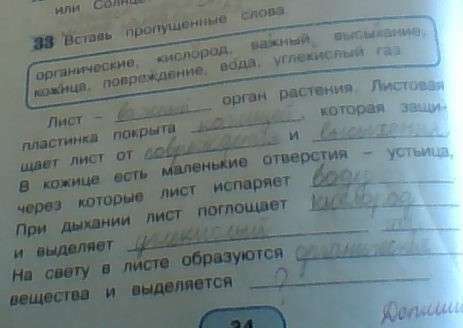 или Солнце
33 Вставь пропущенные слова
органические, кислород, важный, высыхание,
кожица, повреждение, вода, углекислый газ
Лист – важный орган растения. Листовая
пластинка покрыта кожицей, которая защи-
щает лист от повреждения и высыхания.
В кожице есть маленькие отверстия – устьица,
через которые лист испаряет воду
При дыхании лист поглощает кислород
и выделяет углекислый газ
На свету в листе образуются органические
вещества и выделяется ?
34
Допиши